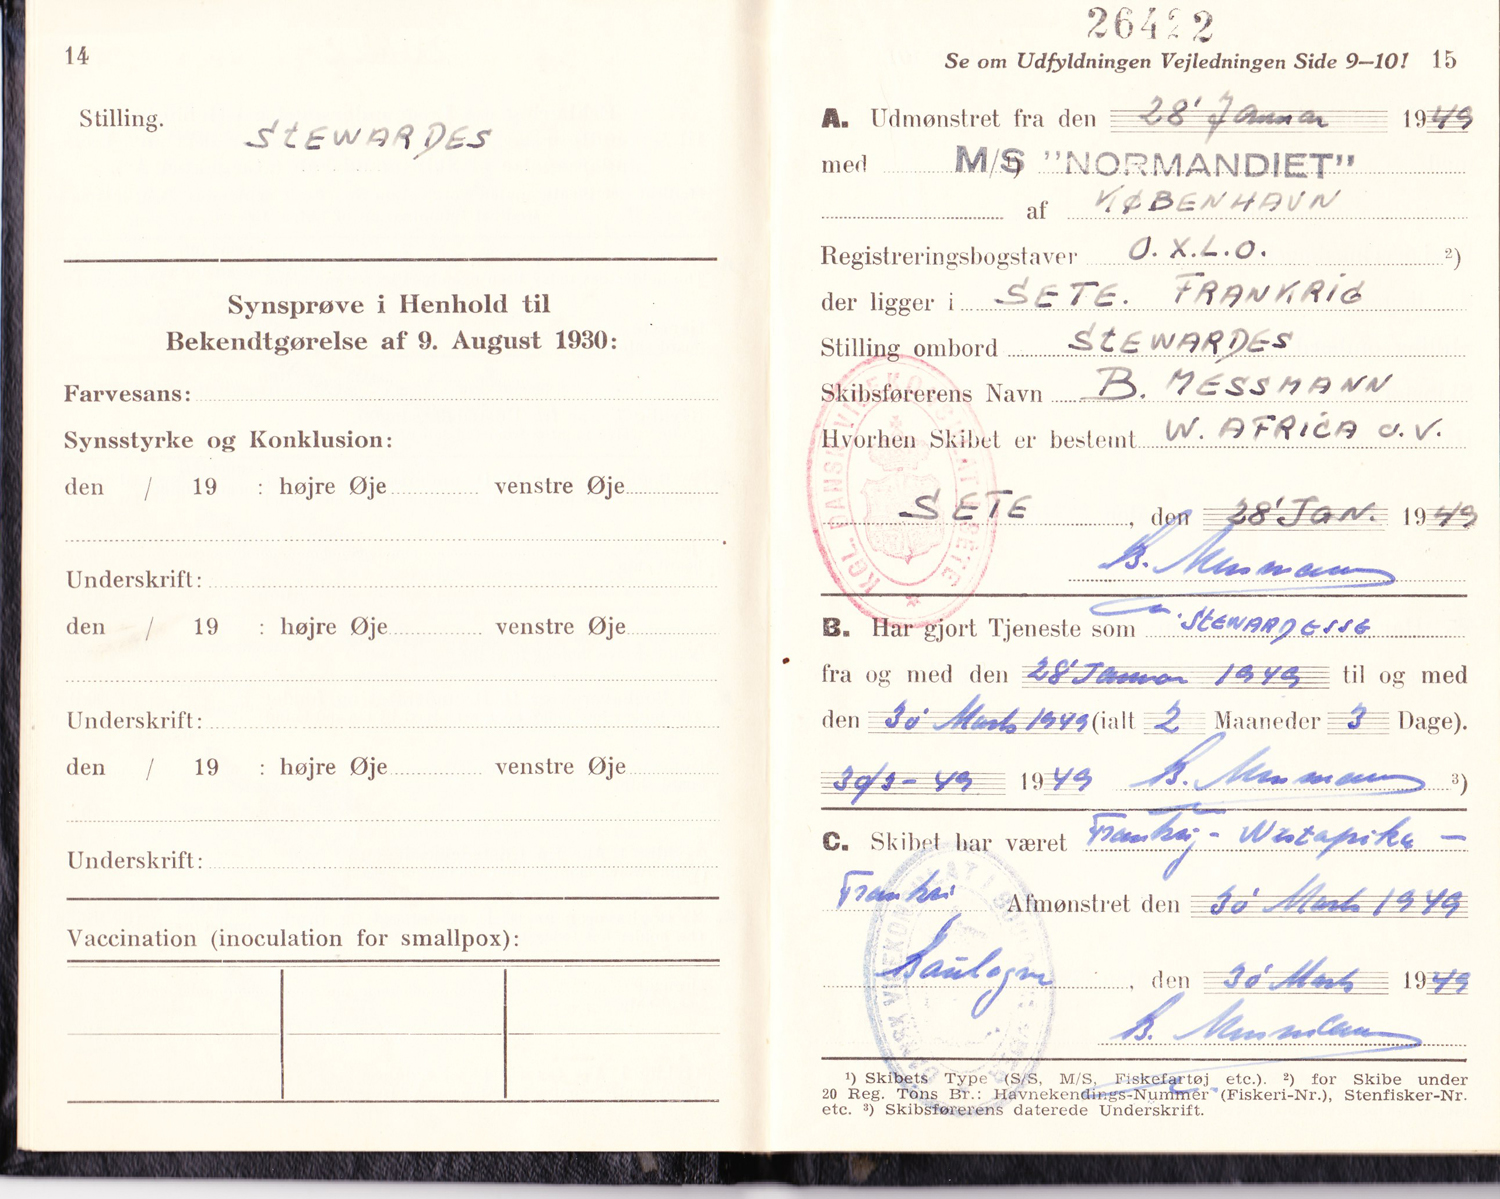 14
Stilling.
StEWARDES
Synsprøve i Henhold til
Bekendtgørelse af 9. August 1930:
Farvesans:
Synsstyrke og Konklusion:
den / 19 : højre Øje venstre Øje
Underskrift:
den / 19 : højre Øje venstre Øje
Underskrift:
den / 19 : højre Øje venstre Øje
Underskrift:
Vaccination (inoculation for smallpox):
26422
Se om Udfyldningen Vejledningen Side 9—10! 15
A. Udmønstret fra den 28' Januar 1949
med M/S ¹) "NORMANDIET"
af KØBENHAVN
Registreringsbogstaver O.X.L.O. ²)
der ligger i SETE. FRANKRIG
Stilling ombord StEWARDES
Skibsførerens Navn B. MESSMANN
Hvorhen Skibet er bestemt W. AFRICA o.V.
SETE, den 28' JAN. 1949
B. Messmann
KGL. DANSK VICEKONSULAT I CETTE
B. Har gjort Tjeneste som StEWARDESSE
fra og med den 28' Januar 1949 til og med
den 30' Marts 1949 (ialt 2 Maaneder 3 Dage).
30/3-49 1949 B. Messmann ³)
C. Skibet har været Frankrig - Westafrika -
Frankri Afmønstret den 30' Marts 1949
Boulogne, den 30' Marts 1949
B. Messmann
DANSK VICEKONSULAT I
¹) Skibets Type (S/S, M/S, Fiskefartøj etc.). ²) for Skibe under
20 Reg. Tons Br.: Havnekendings-Nummer (Fiskeri-Nr.), Stenfisker-Nr.
etc. ³) Skibsførerens daterede Underskrift.